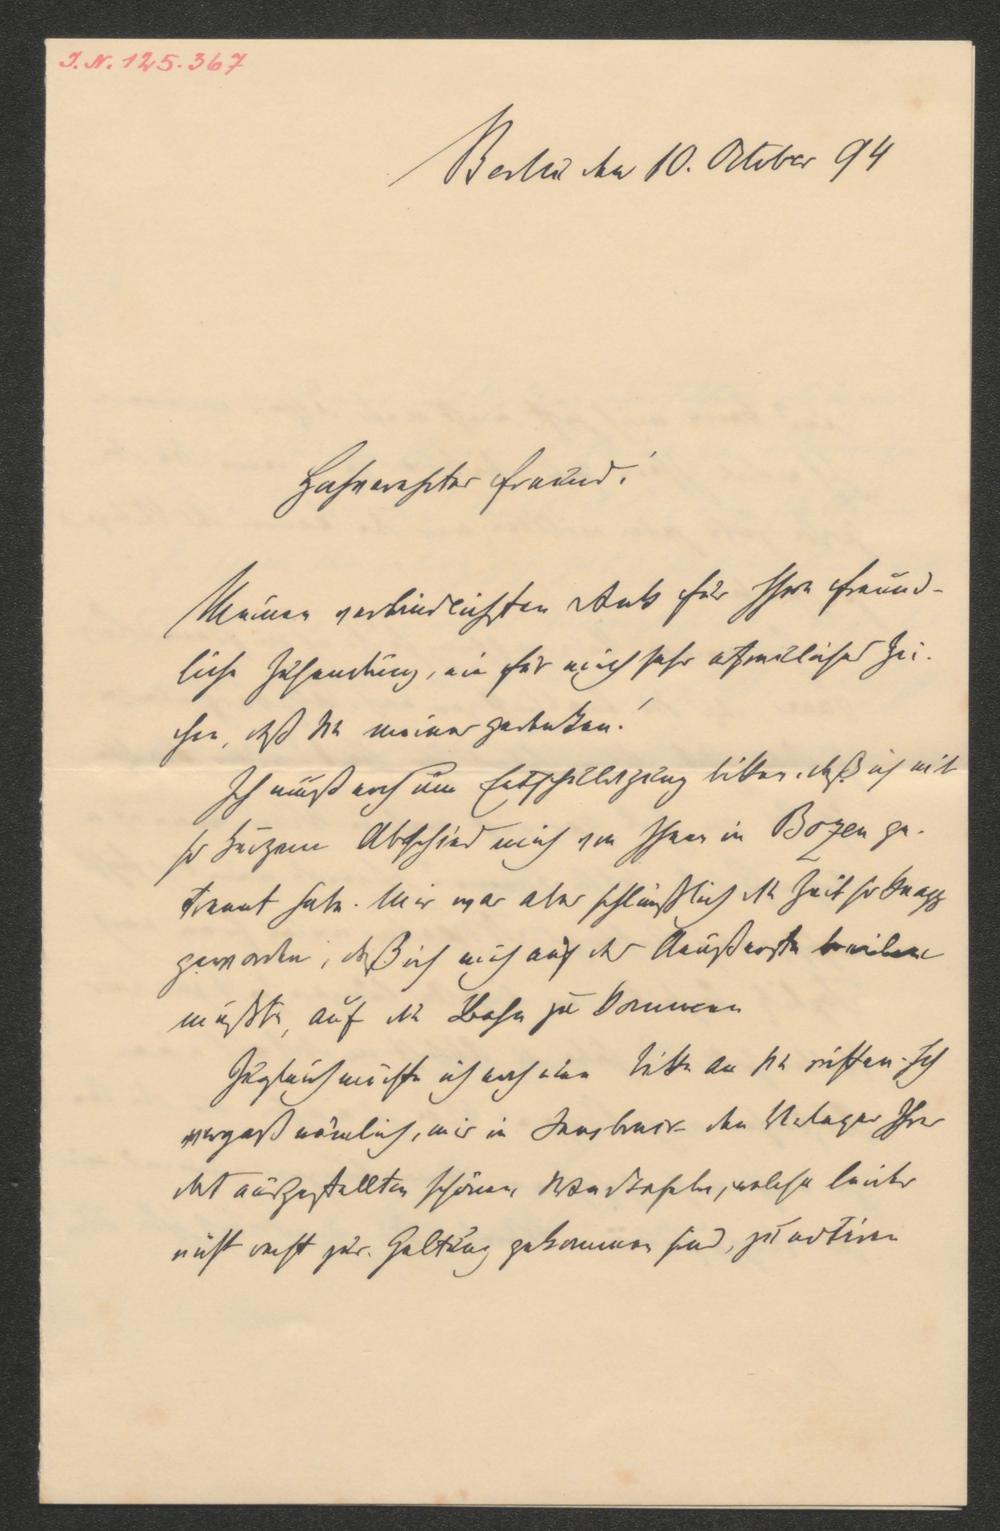 I.N. 125.367
Berlin den 10. October 94
Hochverehrter Freund!
Meinen verbindlichsten Dank für Ihre freund-
liche Zusendung, ein für mich sehr erfreuliches Zei-
chen, daß Sie meiner gedenken!
Ich muß noch um Entschuldigung bitten, daß ich mit
so kurzem Abschied mich von Ihnen in Bozen ge-
trennt habe. Mir war aber schließlich die Zeit so knapp
geworden, daß ich mich auf das Äußerste beeilen
mußte, auf die Bahn zu kommen
Zugleich möchte ich noch eine Bitte an Sie richten. Ich
vergaß nämlich, mir in Innsbruck den Verleger Ihrer
dort ausgestellten schönen Wandtafeln, welche leider
nicht recht zur Geltung gekommen sind, zu notiren